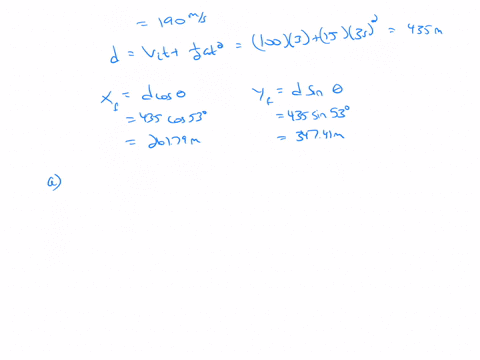 = 190 m/s
d = Vit + ½at² = (100)(3) + (15)(3s)² = 435m
Xf = d cos θ
= 435 cos 53°
= 261.79 m
Yf = d Sin θ
= 435 sin 53°
= 347.41 m
a)